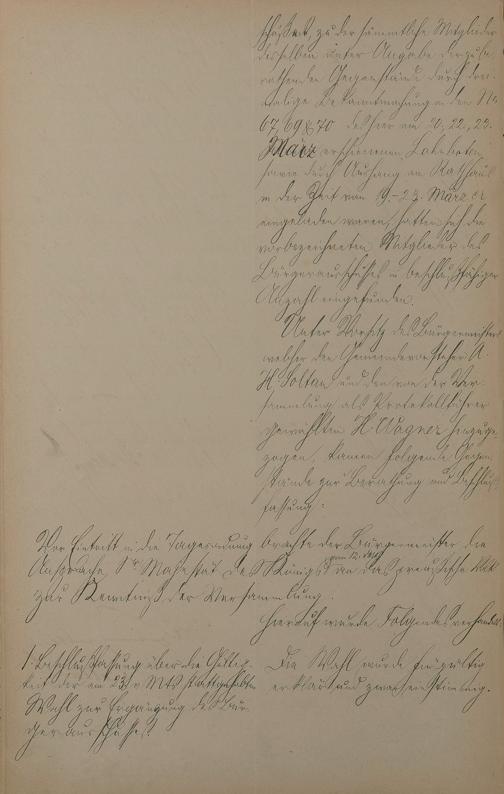 schusses, zu der sämmtliche Mitglieder
desselben unter Angabe der zu be
rathenden Gegenstände durch drei
malige Bekanntmachung in den No
67, 69 & 70 des hier am 20., 22., 23.
März erschienenen Lahnboten
sowie durch Aushang am Rathhaus
in der Zeit vom 19.-23. März cr
eingeladen waren, hatten sich die
vorbezeichneten Mitglieder des
Bürgerausschusses in beschlußfähiger
Anzahl eingefunden.
Unter Vorsitz des Bürgermeisters
welcher den Gemeindevorsteher A.
H. Soltan und den von der Ver
sammlung als Protokollführer
gewählten H. Wagner hinzuge
zogen, kamen folgende Gegen
stände zur Berathung und Beschluß
fassung:
Vor Eintritt in die Tagesordnung brachte der Bürgermeister die
Ansprache Sr. Majestät des Königs vom 12. an das preußische Volk
zur Kenntniß der Versammlung.
Hierauf wurde Folgendes verhandelt
1. Beschlußfassung über die Gültig-
keit der am 23. v Mts stattgehabten
Wahl zur Ergänzung des Bür-
gerausschusses.
Die Wahl wurde für gültig
erklärt und zwar einstimmig.